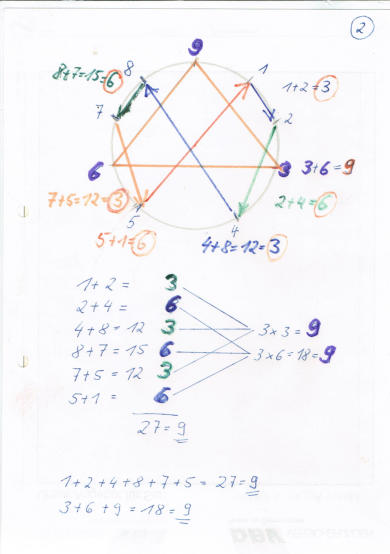 2
9
8+7=15=6
8
1
1+2=3
7
2
6
3
3+6=9
7+5=12=3
2+4=6
5
4
5+1=6
4+8=12=3
1+2= 3
2+4= 6
4+8=12 3
3x3=9
8+7=15 6
3x6=18=9
7+5=12 3
5+1= 6
27=9
1+2+4+8+7+5=27=9
3+6+9=18=9